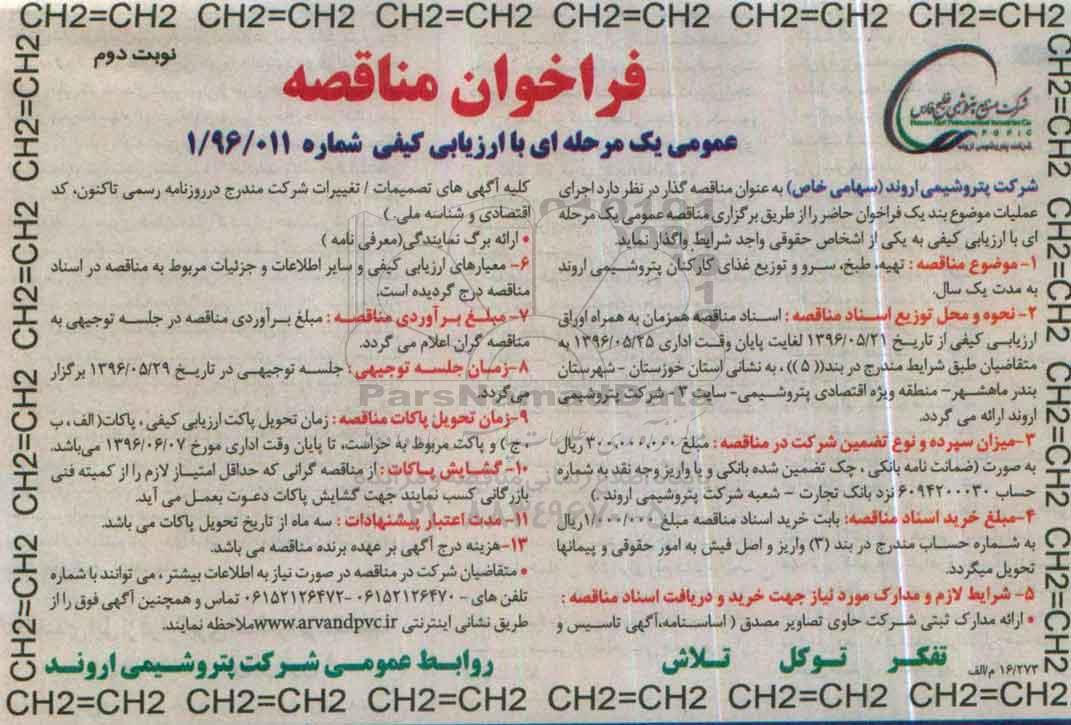 CH2=CH2 CH2=CH2 CH2=CH2 CH2=CH2 CH2=CH2 CH2=CH2
نوبت دوم
فراخوان مناقصه
عمومی یک مرحله ای با ارزیابی کیفی شماره ۱/۹۶/۰۱۱
شرکت صنایع پتروشیمی خلیج فارس
Persian Gulf Petrochemical Industries Co.
PGPIC
شرکت پتروشیمی اروند
شرکت پتروشیمی اروند (سهامی خاص) به عنوان مناقصه گذار در نظر دارد اجرای
عملیات موضوع بند یک فراخوان حاضر را از طریق برگزاری مناقصه عمومی یک مرحله
ای با ارزیابی کیفی به یکی از اشخاص حقوقی واجد شرایط واگذار نماید.
۱- موضوع مناقصه : تهیه، طبخ، سرو و توزیع غذای کارکنان پتروشیمی اروند
به مدت یک سال.
۲- نحوه و محل توزیع اسناد مناقصه : اسناد مناقصه همزمان به همراه اوراق
ارزیابی کیفی از تاریخ ۱۳۹۶/۰۵/۲۱ لغایت پایان وقت اداری ۱۳۹۶/۰۵/۲۵ به
متقاضیان طبق شرایط مندرج در بند(( ۵ )) ، به نشانی استان خوزستان - شهرستان
بندر ماهشهر - منطقه ویژه اقتصادی پتروشیمی- سایت ۳- شرکت پتروشیمی
اروند ارائه می گردد.
۳-میزان سپرده و نوع تضمین شرکت در مناقصه : مبلغ ۳۰۰,۰۰۰,۰۰۰ ریال
به صورت (ضمانت نامه بانکی ، چک تضمین شده بانکی و یا واریز وجه نقد به شماره
حساب ۶۰۹۴۲۰۰۰۳۰ نزد بانک تجارت - شعبه شرکت پتروشیمی اروند .)
۴-مبلغ خرید اسناد مناقصه: بابت خرید اسناد مناقصه مبلغ ۱/۰۰۰/۰۰۰ ریال
به شماره حساب مندرج در بند (۳) واریز و اصل فیش به امور حقوقی و پیمانها
تحویل میگردد.
۵- شرایط لازم و مدارک مورد نیاز جهت خرید و دریافت اسناد مناقصه :
• ارائه مدارک ثبتی شرکت حاوی تصاویر مصدق ( اساسنامه،آگهی تاسیس و
کلیه آگهی های تصمیمات / تغییرات شرکت مندرج درروزنامه رسمی تاکنون، کد
اقتصادی و شناسه ملی. )
• ارائه برگ نمایندگی(معرفی نامه )
۶- معیارهای ارزیابی کیفی و سایر اطلاعات و جزئیات مربوط به مناقصه در اسناد
مناقصه درج گردیده است.
۷- مبلغ برآوردی مناقصه : مبلغ برآوردی مناقصه در جلسه توجیهی به
مناقصه گران اعلام می گردد.
۸-زمان جلسه توجیهی : جلسه توجیهی در تاریخ ۱۳۹۶/۰۵/۲۹ برگزار
می‌گردد.
۹-زمان تحویل پاکات مناقصه : زمان تحویل پاکت ارزیابی کیفی ، پاکات( الف ، ب
، ج ) و پاکت مربوط به حراست، تا پایان وقت اداری مورخ ۱۳۹۶/۰۶/۰۷ می‌باشد.
۱۰- گشایش پاکات : از مناقصه گرانی که حداقل امتیاز لازم را از کمیته فنی
بازرگانی کسب نمایند جهت گشایش پاکات دعوت بعمل می آید.
۱۱- مدت اعتبار پیشنهادات : سه ماه از تاریخ تحویل پاکات می باشد.
۱۳-هزینه درج آگهی بر عهده برنده مناقصه می باشد.
• متقاضیان شرکت در مناقصه در صورت نیاز به اطلاعات بیشتر ، می توانند با شماره
تلفن های - ۰۶۱۵۲۱۲۶۴۷۰ - ۰۶۱۵۲۱۲۶۴۷۲ تماس و همچنین آگهی فوق را از
طریق نشانی اینترنتی www.arvandpvc.ir ملاحظه نمایند.
۱۶/۲۷۳ م/الف
تفکر توکل تلاش
روابط عمومی شرکت پتروشیمی اروند
CH2=CH2 CH2=CH2 CH2=CH2 CH2=CH2 CH2=CH2 CH2=CH2
CH2=CH2 CH2=CH2 CH2=CH2 CH2=CH2
CH2=CH2 CH2=CH2 CH2=CH2 CH2=CH2
ParsNamadData